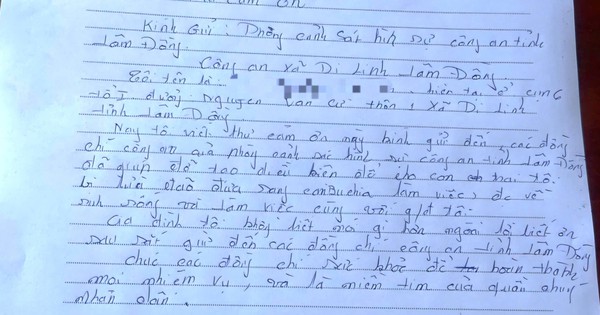 cảm ơn
Kính Gửi: Phòng cảnh sát hình sự công an tỉnh
Lâm Đồng.
Công an xã Di Linh Lâm Đồng,
Tôi tên là: hiện tại ở cụm 6
tổ 1 đường Nguyễn Văn Cừ thôn 1 xã Di Linh
tỉnh Lâm Đồng
Nay tôi viết thư cảm ơn này kính gửi đến các đồng
chí công an của phòng cảnh sát hình sự công an tỉnh Lâm Đồng
đã giúp đỡ tạo điều kiện để cho con trai tôi
bị lừa đưa sang campuchia làm việc, đc về
sinh sống và làm việc cùng với gđ tôi.
Gia đình tôi không biết nói gì hơn ngoài lời biết ơn
sâu sắc gửi đến các đồng chí công an tỉnh Lâm Đồng
chúc các đồng chí sức khỏe để hoàn thành
mọi nhiệm vụ, và là niềm tin của quần chúng
nhân dân.